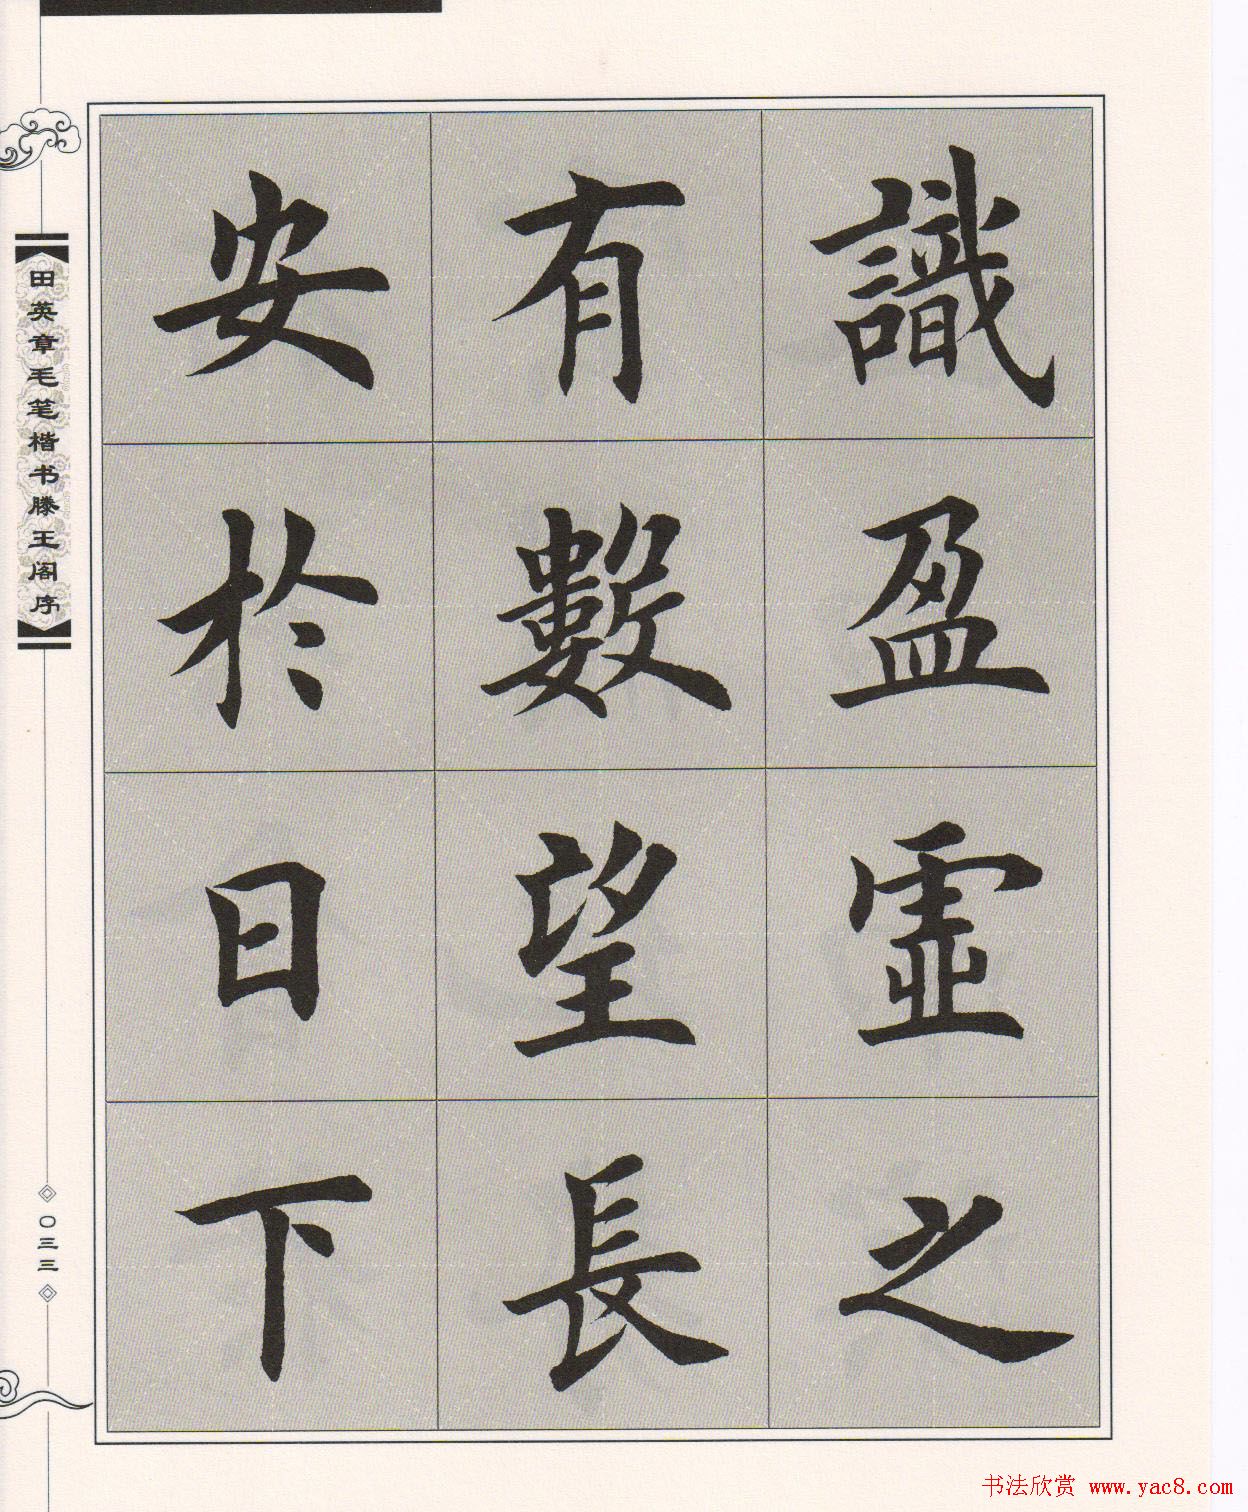 識盈虛之
有數望長
安於日下
田英章毛笔楷书滕王阁序
〇三三
书法欣赏 www.yac8.com